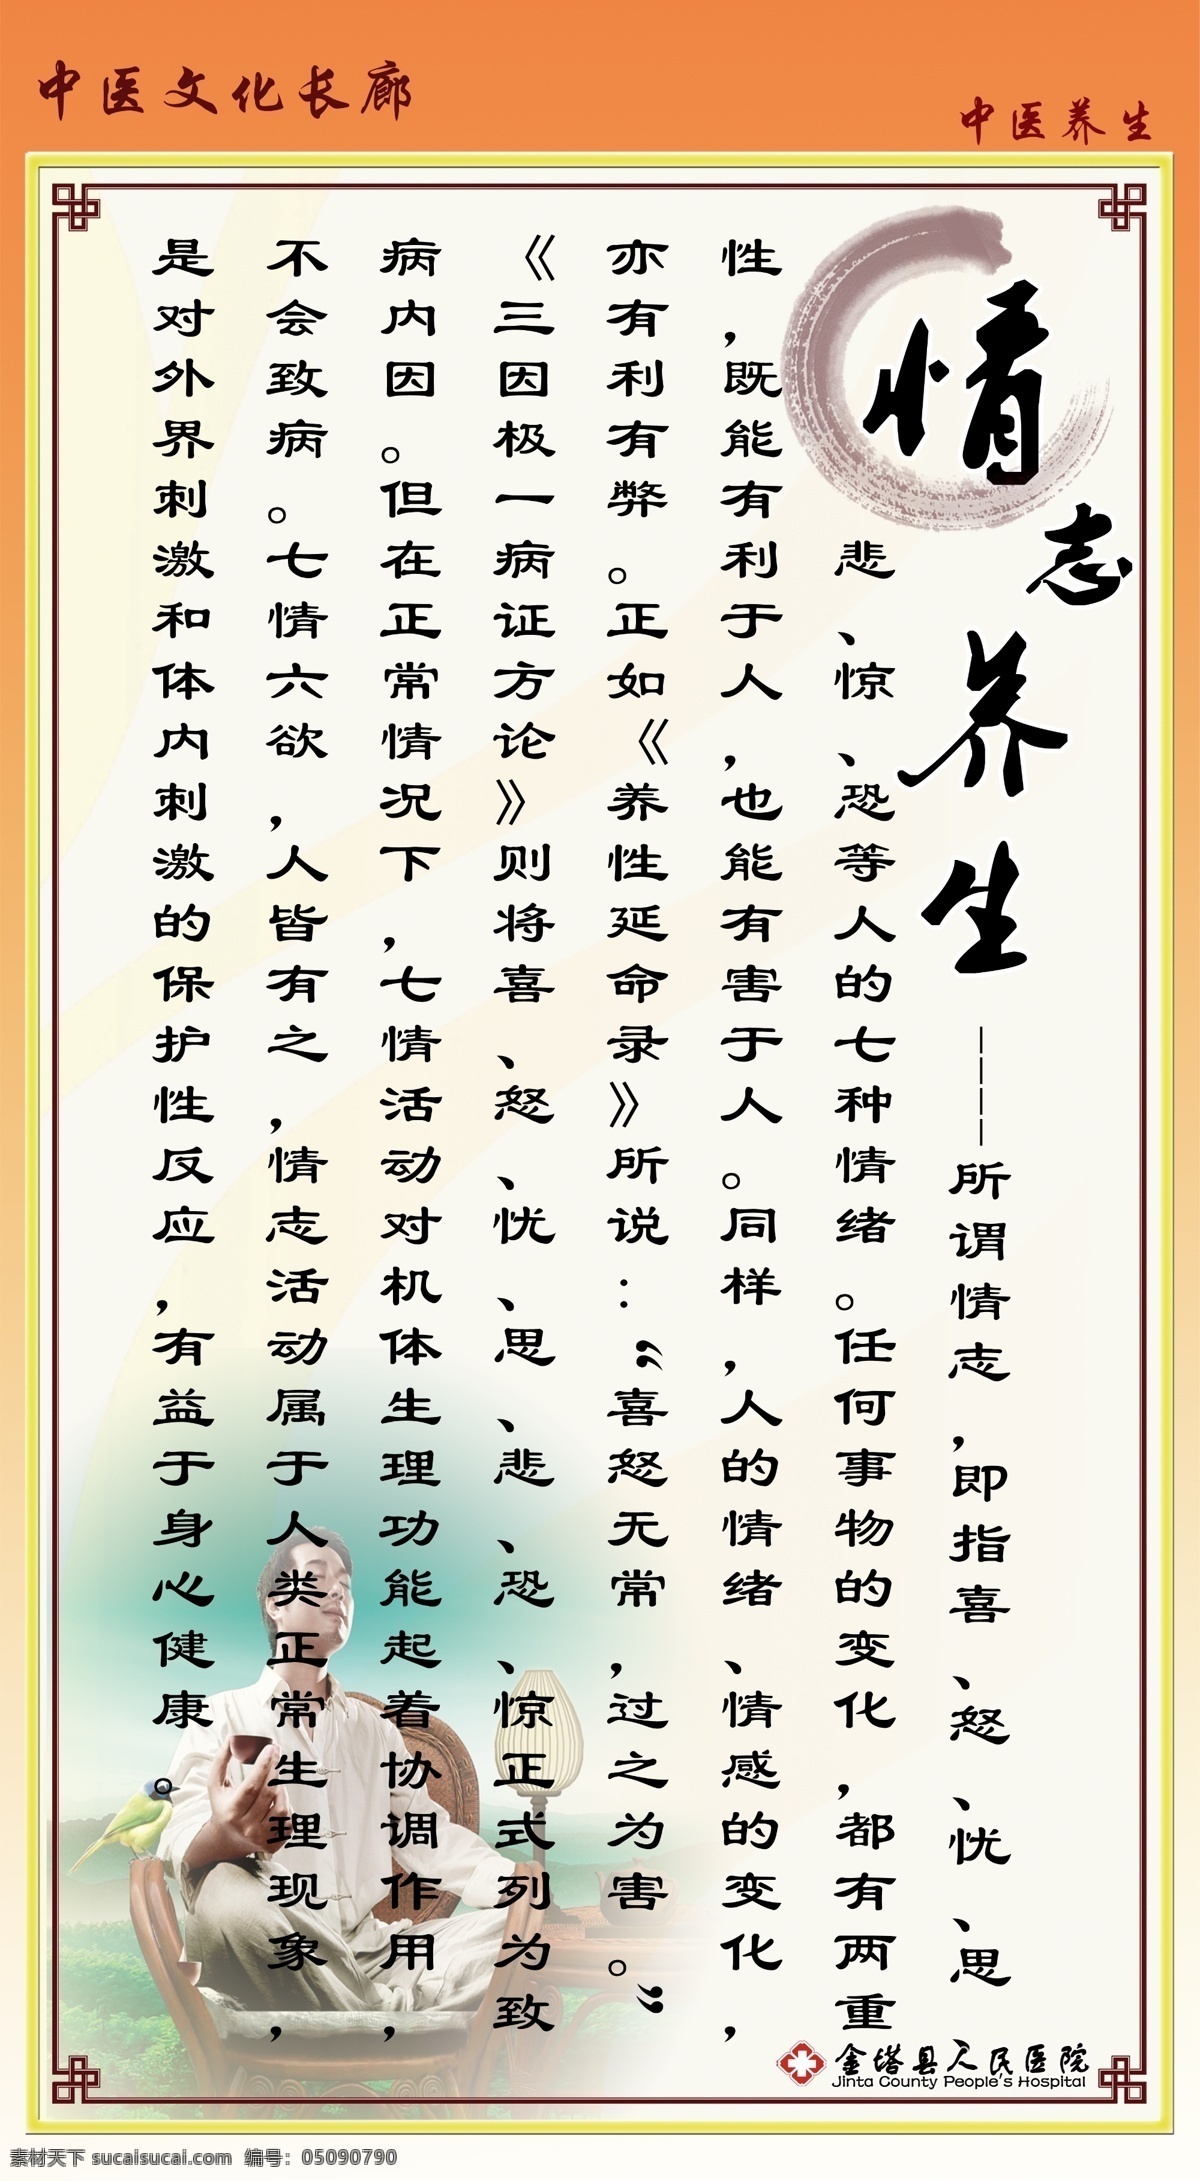 中医文化长廊
中医养生
情志养生
----所谓情志,即指喜、怒、忧、思、
悲、惊、恐等人的七种情绪。任何事物的变化,都有两重
性,既能有利于人,也能有害于人。同样,人的情绪、情感的变化,
亦有利有弊。正如《养性延命录》所说:“喜怒无常,过之为害。”
《三因极一病证方论》则将喜、怒、忧、思、悲、恐、惊正式列为致
病内因。但在正常情况下,七情活动对机体生理功能起着协调作用,
不会致病。七情六欲,人皆有之,情志活动属于人类正常生理现象,
是对外界刺激和体内刺激的保护性反应,有益于身心健康。
金塔县人民医院
Jinta County People's Hospital
素材天下 sucaisucai.com 编号: 05090790